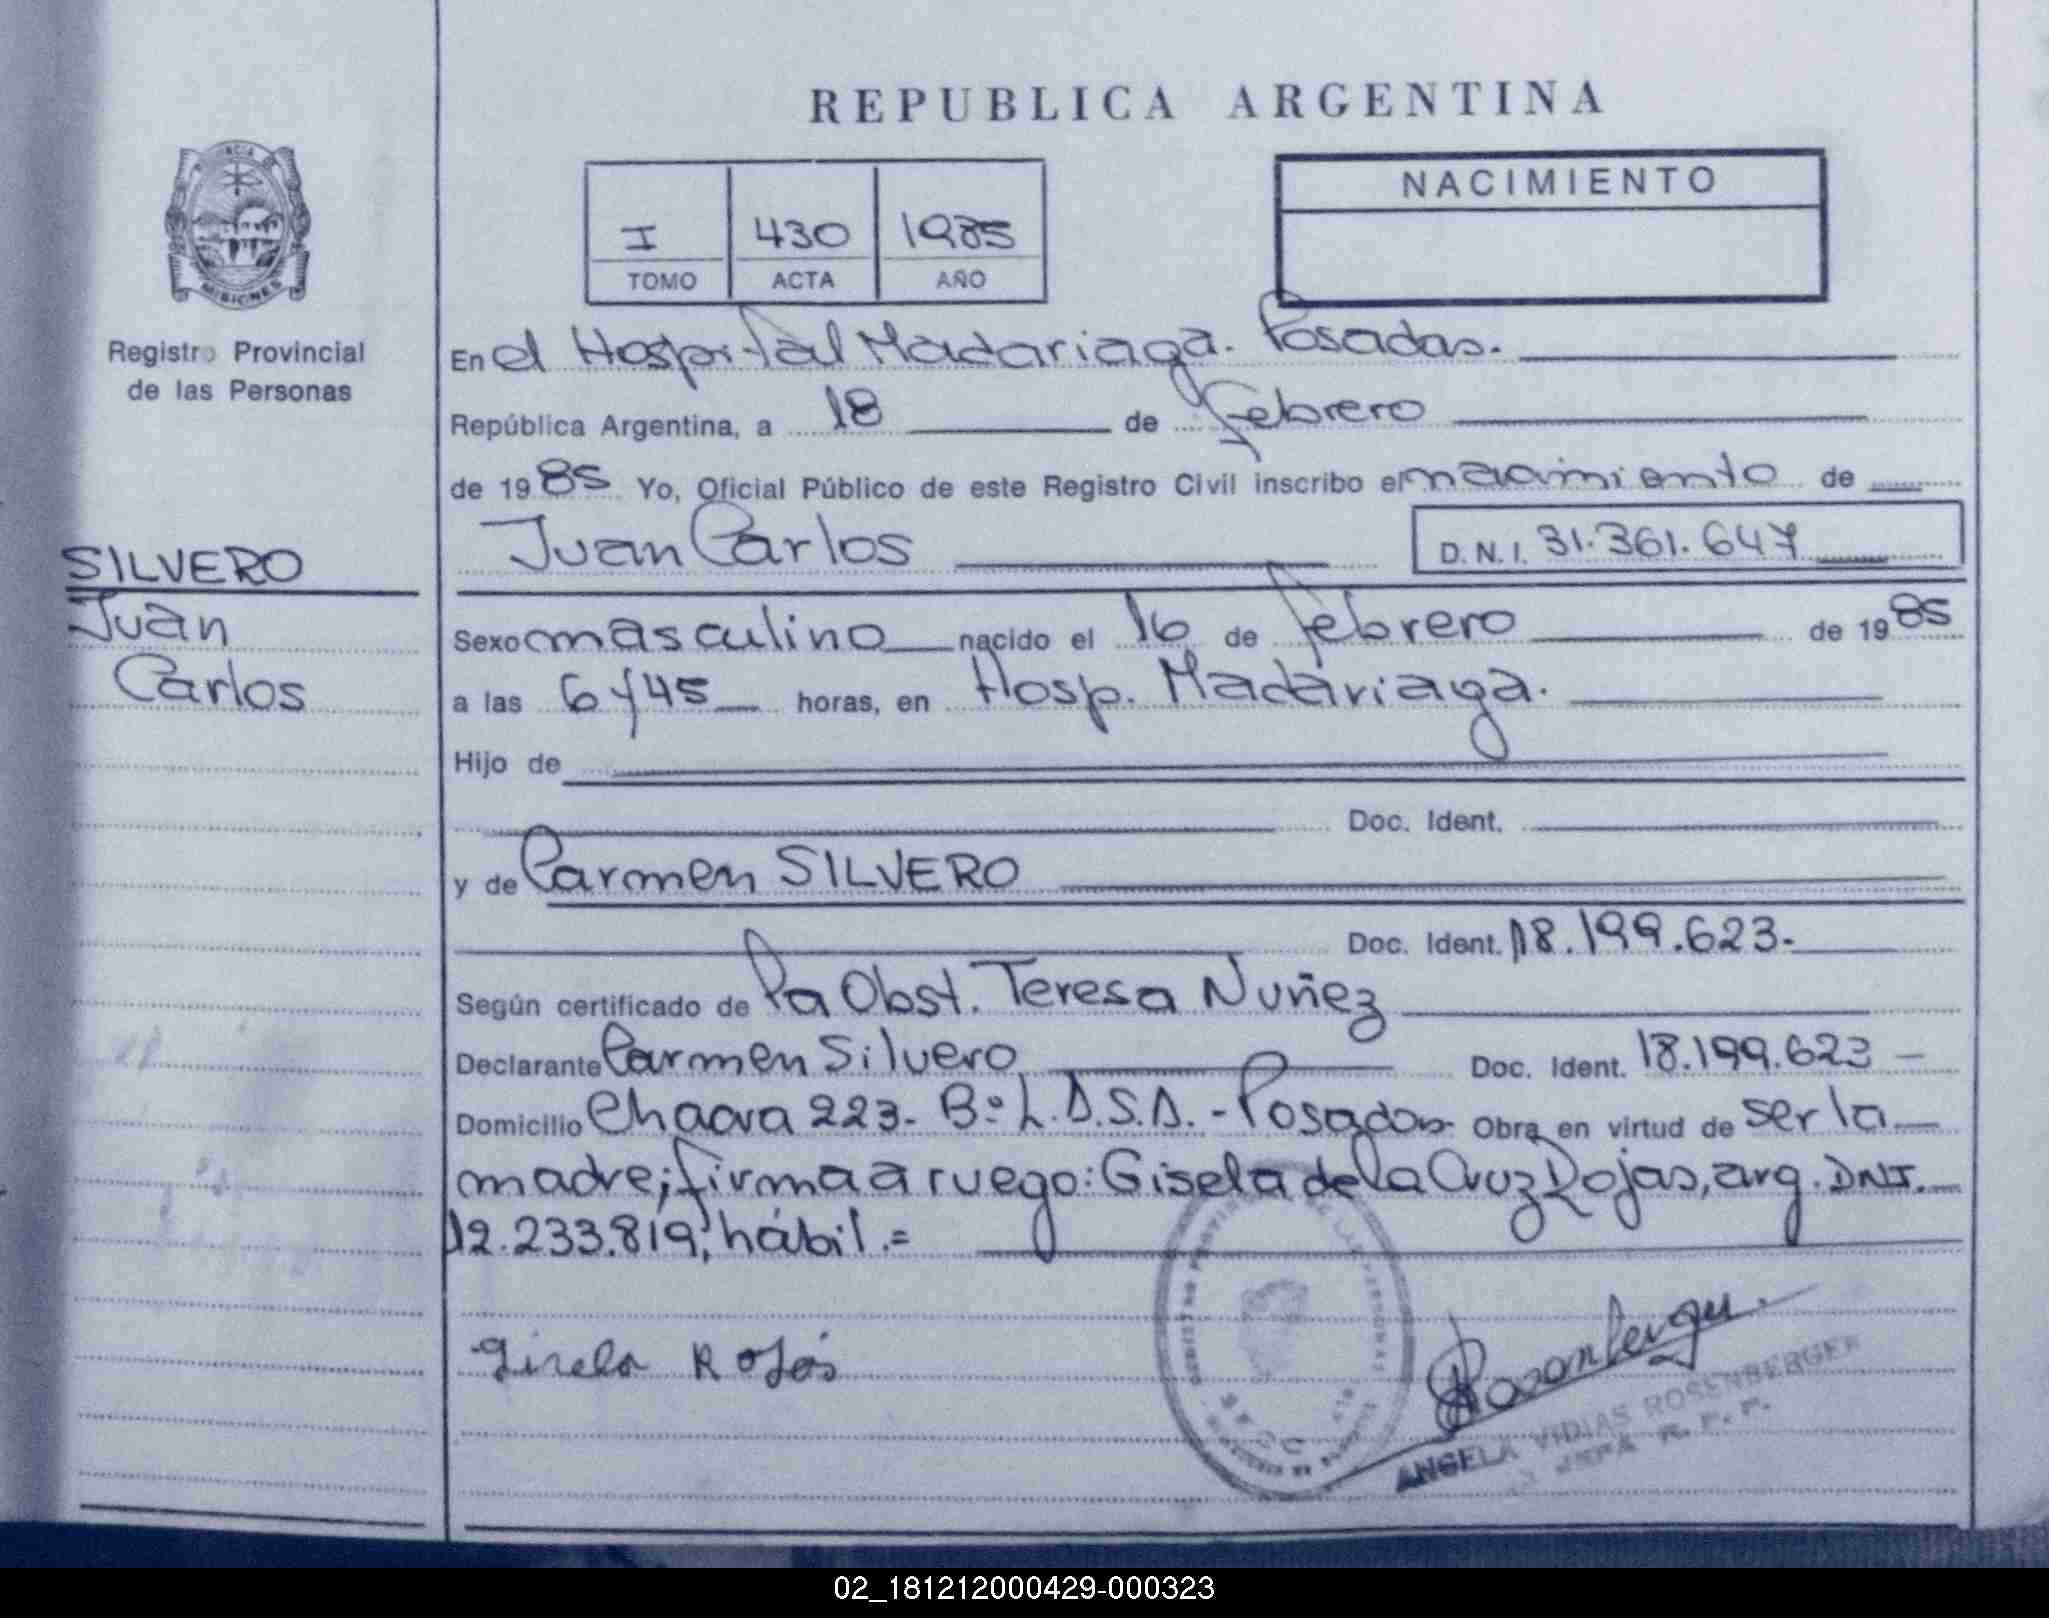 REPUBLICA ARGENTINA
PROVINCIA DE
MISIONES
Registro Provincial
de las Personas
I 430 1985
TOMO ACTA AÑO
NACIMIENTO
En el Hospital Madariaga. Posadas.
República Argentina, a 18 de febrero
de 1985 Yo, Oficial Público de este Registro Civil inscribo el nacimiento de
Juan Carlos D.N.I. 31.361.647
SILVERO
Juan
Carlos
Sexo masculino nacido el 16 de febrero de 1985
a las 6 y 45 horas, en Hosp. Madariaga.
Hijo de
Doc. Ident.
y de Carmen SILVERO
Doc. Ident. 18.199.623.
Según certificado de Pa Obst. Teresa Nuñez
Declarante Carmen Silvero Doc. Ident. 18.199.623
Domicilio Chacra 223. Bº L.D.S.D. - Posadas Obra en virtud de ser la
madre; firma a ruego: Gisela de la Cruz Rojas, arg. DNI.
12.233.819; hábil.=
Gisela Rojas
Rosenberger
ANGELA VIDIAS ROSENBERGER
JEFA R. P. P.
02_181212000429-000323